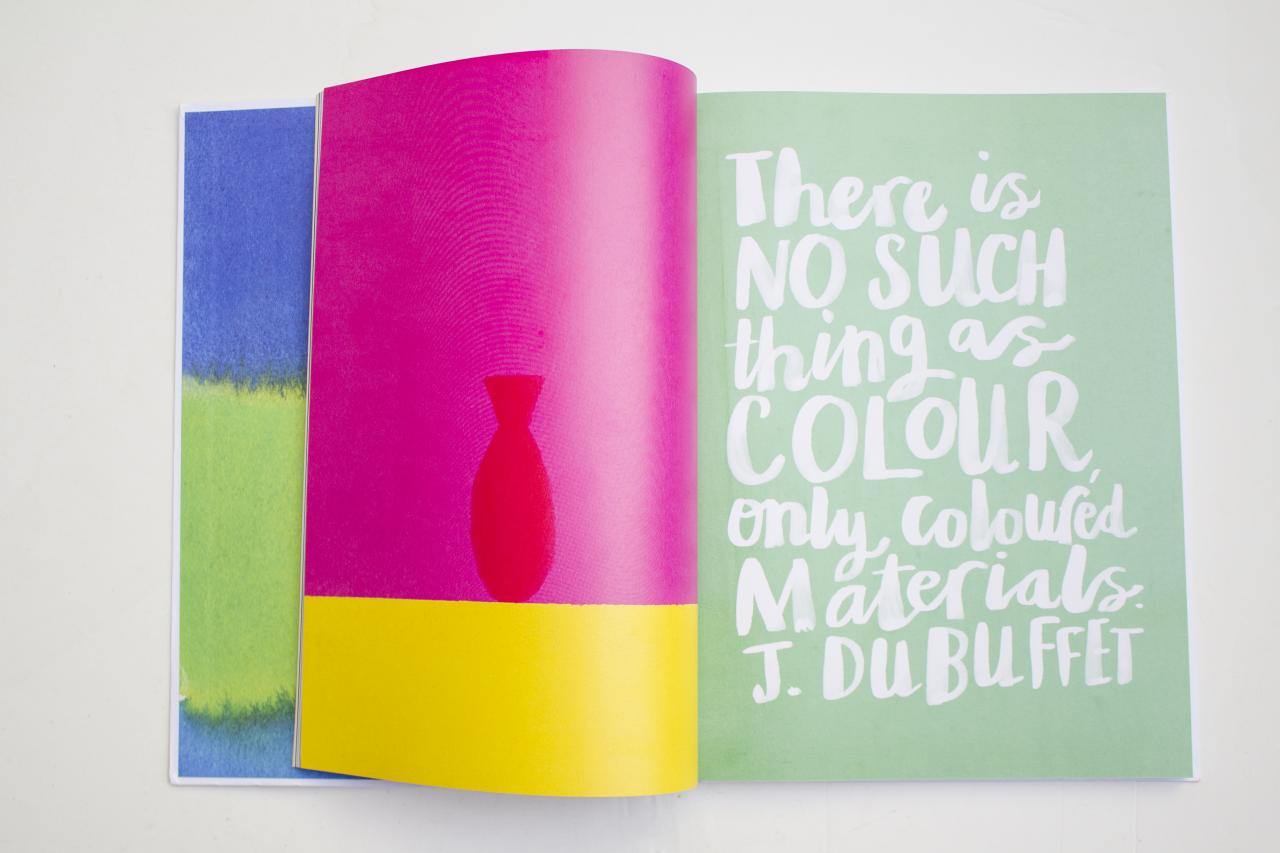 There is
NO SUCH
thing as
COLOUR,
only coloured
Materials.
J. DUBUFFET